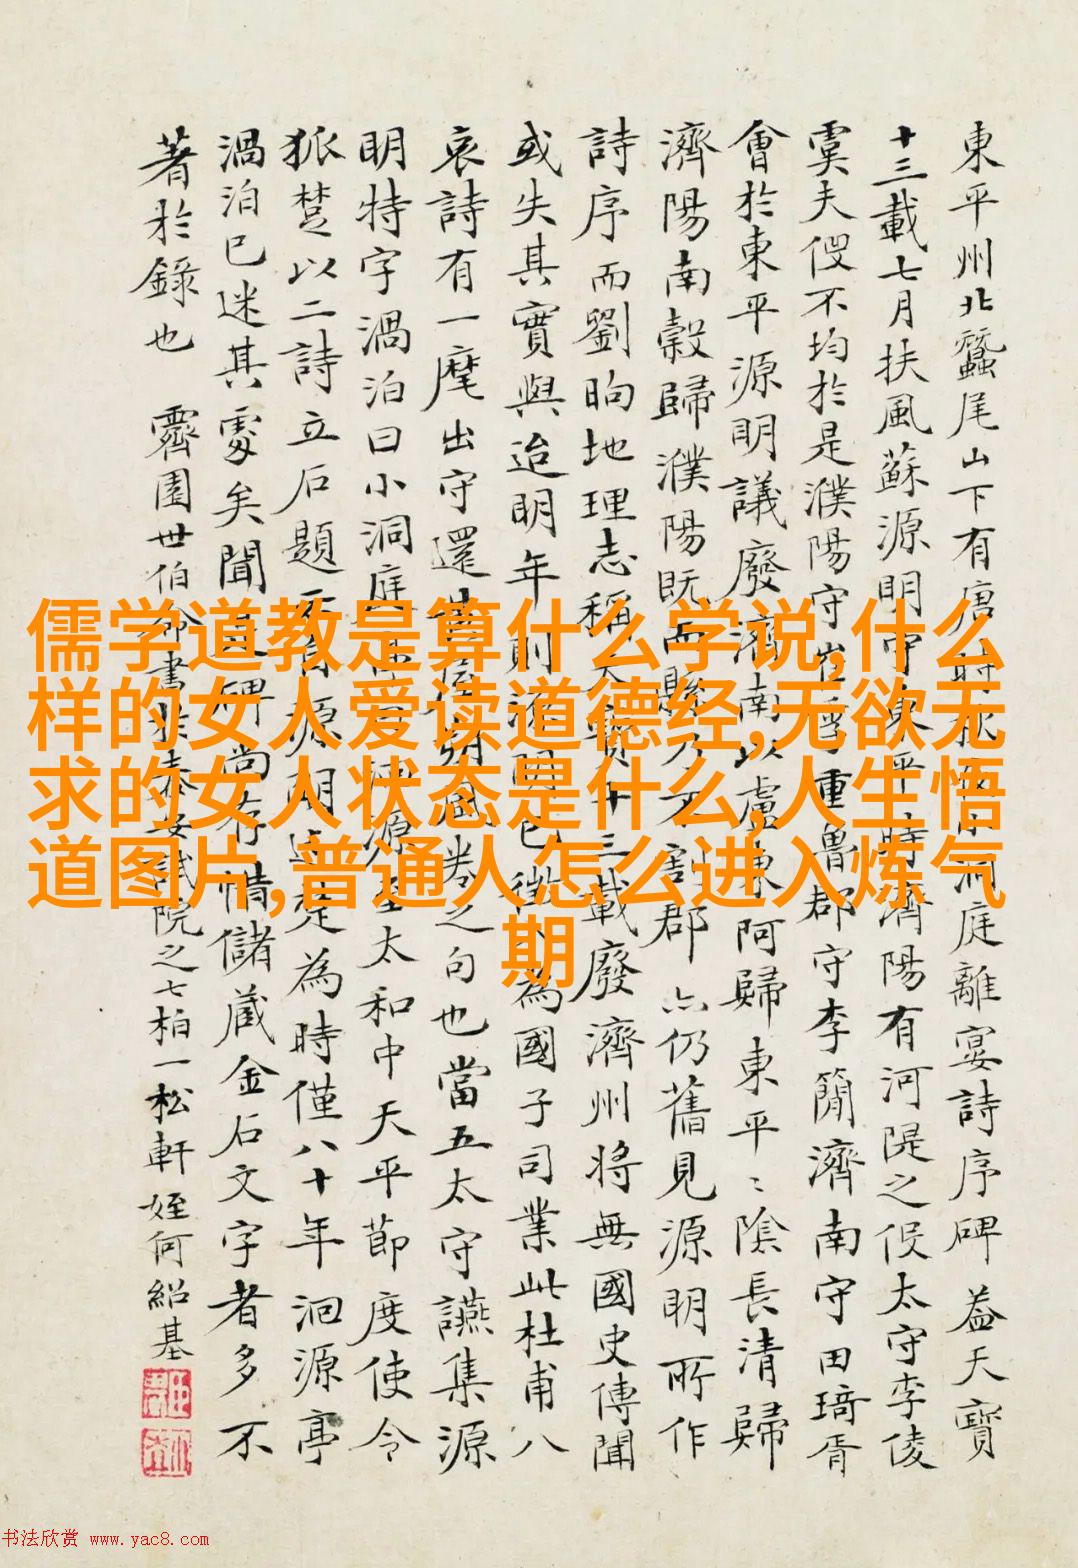 東平州北蠶尾山下有唐時
洞庭離宴詩序碑蓋天寶
十三載七月扶風蘇源明守東平時濟陽有河隄之役太守李倰
虞夫役不均於是濮陽守崔
重魯郡守李簡濟南守田琦胥
會於東平源明議廢濟南以盧東阿歸東平〻陰長清歸
濟陽南穀歸濮陽既而縣
割郡亦仍舊見源明所作
詩序而劉昫地理志稱天寶十三載廢濟州將無國史傳聞
或失其實與迨明年則源明已徵為國子司業此杜甫八
哀詩有一麾出守還
之句也當五太守讌集源
明特字渦泊曰小洞庭
太和中天平節度使令
狐楚以二詩立石題
為時僅八十年洄源亭
渦泊已迷其處矣聞
碑尚存惜儲藏金石文字者多不
著於錄也 霽園世伯
院之七柏一松軒 姪何紹基
儒学道教是算什么学说,什么
样的女人爱读道德经,无欲无
求的女人状态是什么,人生悟
道图片,普通人怎么进入炼气
期
书法欣赏 www.yac8.com